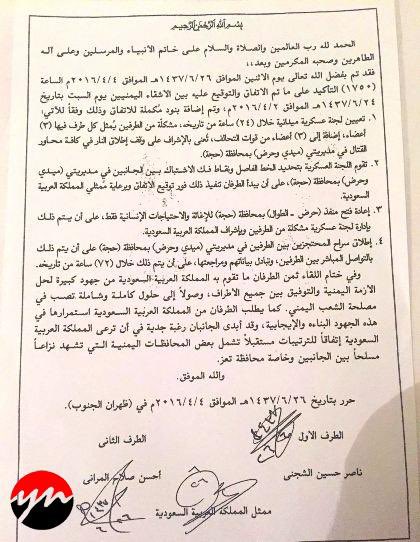 بسم الله الرحمن الرحيم
الحمد لله رب العالمين والصلاة والسلام على خاتم الأنبياء والمرسلين وعلى آله
الطاهرين وصحبه المكرمين وبعد،،
فقد تم بفضل الله تعالى يوم الاثنين الموافق ١٤٣٧/٦/٢٦هـ الموافق ٢٠١٦/٤/٤م الساعة
(١٧٥٠) التأكيد على ما تم الاتفاق والتوقيع عليه بين الأشقاء اليمنيين يوم السبت بتاريخ
١٤٣٧/٦/٢٤هـ الموافق ٢٠١٦/٤/٢م، وتم إضافة بنود مكملة للاتفاق وذلك وفقاً للآتي:
١. تعيين لجنة عسكرية ميدانية خلال (٢٤) ساعة من تاريخه، مشكلة من الطرفين يُمثل كل طرف فيها (٣)
أعضاء، إضافة إلى (٣) أعضاء من قوات التحالف، تُعنى بالإشراف على وقف إطلاق النار في كافة محاور
القتال في مديريتي (ميدي وحرض) بمحافظة (حجة).
٢. تقوم اللجنة العسكرية بتحديد الخط الفاصل ونقاط فك الاشتباك بين الجانبين في مديريتي (ميدي
وحرض) بمحافظة (حجة)، على أن يبدأ الطرفان تنفيذ ذلك فور توقيع الاتفاق وبرعاية ممثلي المملكة العربية
السعودية.
٣. إعادة فتح منفذ (حرض - الطوال) بمحافظة (حجة) للإغاثة والاحتياجات الإنسانية فقط، على أن يتم ذلك
بإدارة لجنة عسكرية مشكلة من الطرفين وبإشراف المملكة العربية السعودية.
٤. إطلاق سراح المحتجزين بين الطرفين في مديريتي (ميدي وحرض) بمحافظة (حجة) على أن يتم ذلك
بالتواصل المباشر بين الطرفين، وتبادل بياناتهم ومراجعتها، على أن يتم ذلك خلال (٧٢) ساعة من تاريخه.
وفي ختام اللقاء ثمن الطرفان ما تقوم به المملكة العربية السعودية من جهود كبيرة لحل
الأزمة اليمنية والتوفيق بين جميع الأطراف، وصولاً إلى حلول كاملة وشاملة تصب في
مصلحة الشعب اليمني. كما يطلب الطرفان من المملكة العربية السعودية استمرارها في
هذه الجهود البناءه والإيجابية، وقد أبدى الجانبان رغبة جدية في أن ترعى المملكة العربية
السعودية إتفاقاً للترتيبات مستقبلاً تشمل بعض المحافظات اليمنية التي تشهد نزاعاً
مسلحاً بين الجانبين وخاصة محافظة تعز.
والله الموفق.
حرر بتاريخ ١٤٣٧/٦/٢٦هـ الموافق ٢٠١٦/٤/٤م في (ظهران الجنوب).
الطرف الأول
الطرف الثاني
ناصر حسين الشجني
أحسن صلاح المراني
ممثل المملكة العربية السعودية
yn